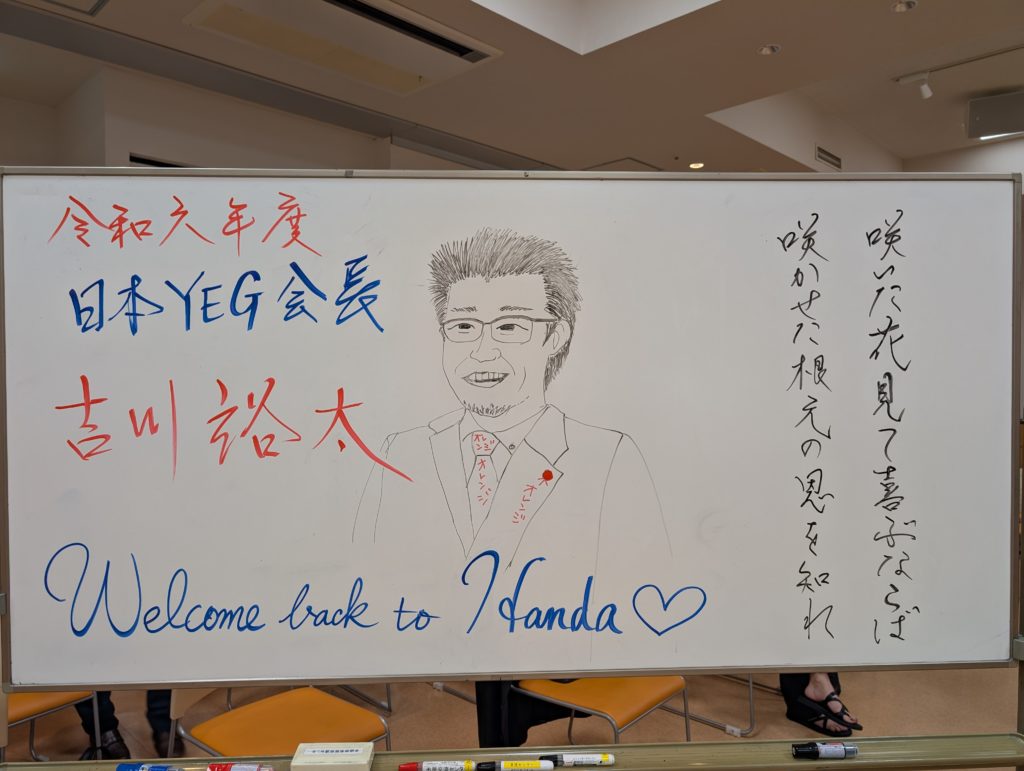 令和六年度
日本YEG会長
吉川裕太
オレンジ
オレンジ
オレンジ
Welcome back to Handa♡
咲いた花見て喜ぶならば
咲かせた根元の恩を知れ